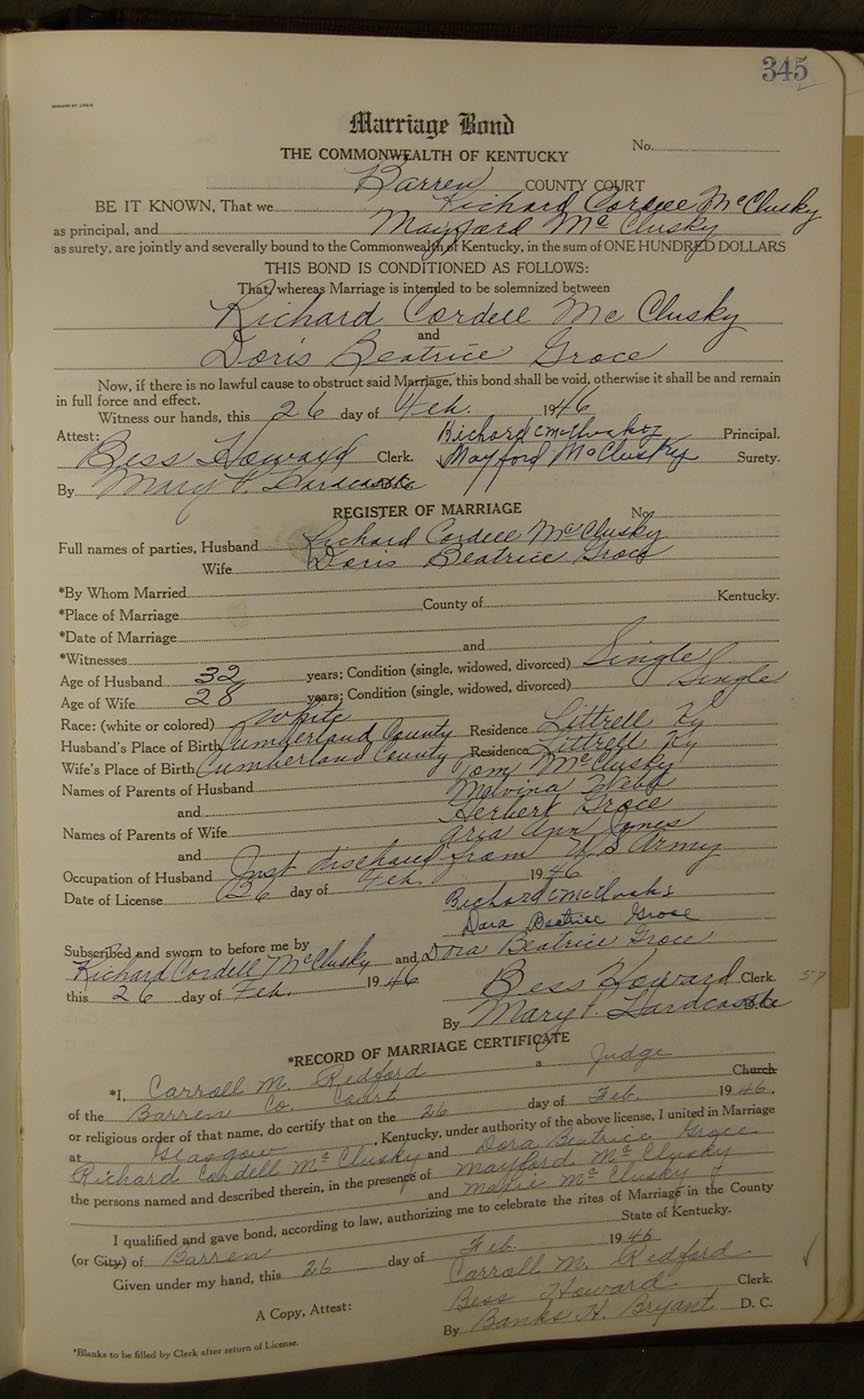 345
Marriage Bond
No.
THE COMMONWEALTH OF KENTUCKY
Barren COUNTY COURT
BE IT KNOWN, That we Richard Cordell McClusky
as principal, and Mayford McClusky
as surety, are jointly and severally bound to the Commonwealth of Kentucky, in the sum of ONE HUNDRED DOLLARS
THIS BOND IS CONDITIONED AS FOLLOWS:
That, whereas Marriage is intended to be solemnized between
Richard Cordell McClusky
and
Doris Beatrice Groce
Now, if there is no lawful cause to obstruct said Marriage, this bond shall be void, otherwise it shall be and remain
in full force and effect.
Witness our hands, this 26 day of Feb. 1946
Attest: Richard C McClusky Principal.
Bess Howard Clerk. Mayford McClusky Surety.
By Mary P. Hardcastle
REGISTER OF MARRIAGE
No.
Full names of parties, Husband Richard Cordell McClusky
Wife Doris Beatrice Groce
*By Whom Married
*Place of Marriage County of Kentucky.
*Date of Marriage
*Witnesses and
Age of Husband 32 years; Condition (single, widowed, divorced) Single
Age of Wife 28 years; Condition (single, widowed, divorced) Single
Race: (white or colored) White
Husband's Place of Birth Cumberland County Residence Littrell Ky
Wife's Place of Birth Cumberland County Residence Littrell Ky
Names of Parents of Husband Tom McClusky
and Melvina Webb
Names of Parents of Wife Herbert Groce
and Ann Jones
Occupation of Husband Just from U S Army
Date of License 26 day of Feb. 1946
Richard C McClusky
Dora Beatrice Groce
Subscribed and sworn to before me by
Richard Cordell McClusky and Dora Beatrice Groce
this 26 day of Feb. 1946
Bess Howard Clerk.
By Mary P. Hardcastle
*RECORD OF MARRIAGE CERTIFICATE
*I, Carroll M. Redford a Judge
of the Barren Co. Court Church
or religious order of that name, do certify that on the 26 day of Feb. 1946,
at Glasgow, Kentucky, under authority of the above license, I united in Marriage
Richard Cordell McClusky and Dora Beatrice Groce
the persons named and described therein, in the presence of Mayford McClusky
and McClusky
I qualified and gave bond, according to law, authorizing me to celebrate the rites of Marriage in the County
(or City) of Barren State of Kentucky.
Given under my hand, this 26 day of Feb. 1946
Carroll M. Redford
A Copy, Attest: Bess Howard Clerk.
By Banks H. Bryant D. C.
*Blanks to be filled by Clerk after return of License.